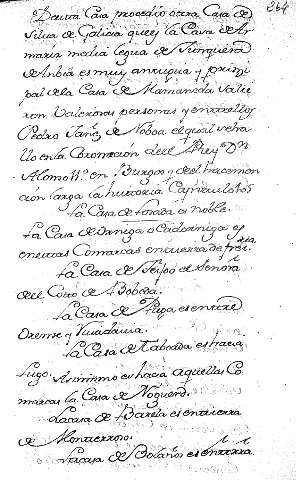 264
De outra Casa procedio otra Casa de
Silva de Galicia que es la Casa de Ar
maris media legua de Junquera
de Anbia es muy antigua y prinsi
pal de la Casa de Mamaneda salie
ron Valerosas personas y entre ellos
Pedro de Noboa el qual se ha
llo en la Coronacion del Rey Dn
Alonso 11º en Burgos y del hace men
cion larga la historia Capitulo 103
La Casa de Losada es noble.
La Casa de o Cadorniga es
en estas Comarcas en tierra de
La Casa de Feijoo es Señora
del Coto de Bobeda.
La Casa de Puga es entre
Orense y Vivadavia.
La Casa de Taboada es hacia
Lugo. Asi mismo es hacia aquellas Co
marcas la Casa de Noguerol.
La casa de Barela es en tierra
de Monterroso.
La casa de Bolaños es en tierra